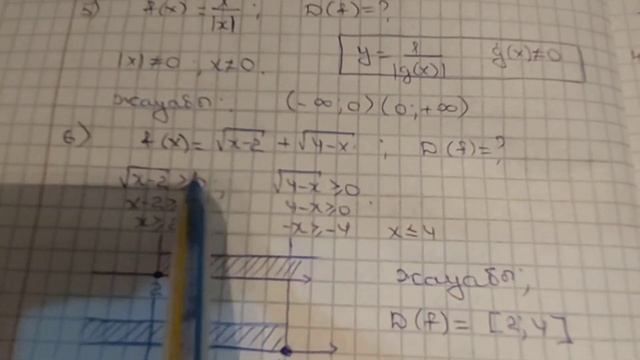 5) f(x) = x/|x| ; D(f)=?
|x|≠0 ; x≠0. y = f/|g(x)| g(x)≠0
жауабы: (-∞;0)(0;+∞)
6) f(x) = √x-2 + √4-x ; D(f)=?
√x-2 √4-x ≥0
x-2≥ 4-x≥0
x≥ -x≥-4 x≤4
2 жауабы;
D(f) = [2;4]